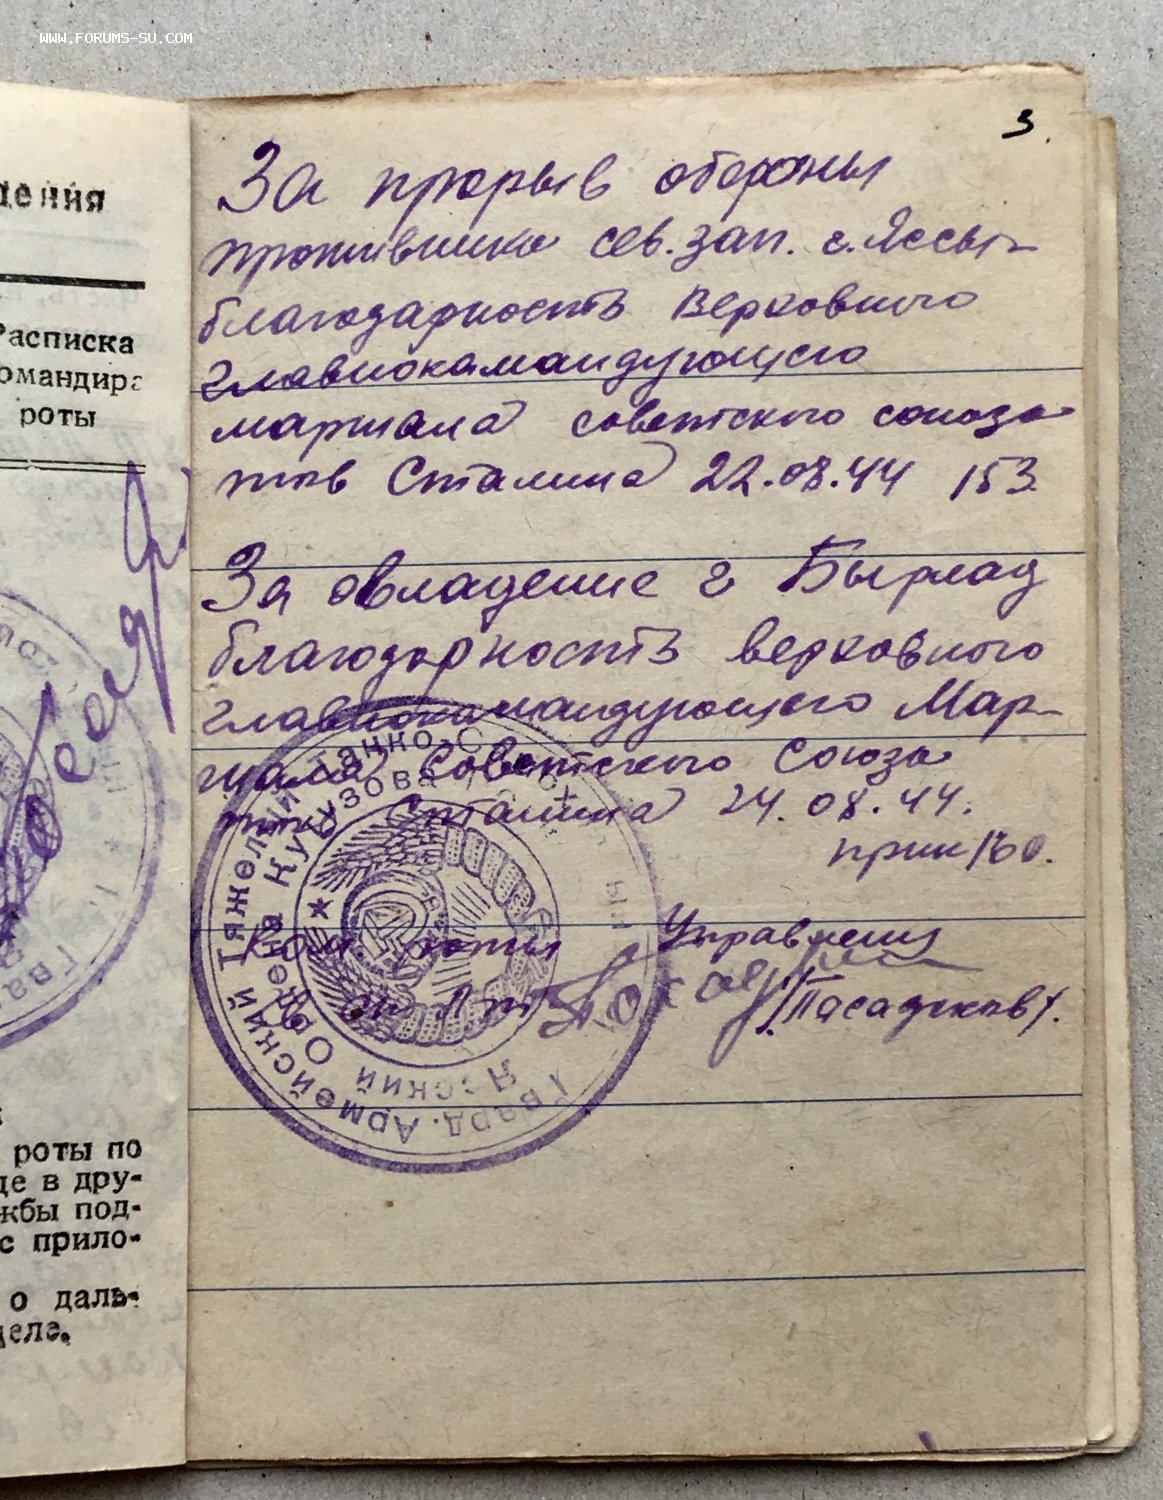 WWW.FORUMS-SU.COM
3.
За прорыв обороны
противника сев. зап. г. Яссы-
благодарность Верховного
главнокамандующего
маршала советского союза
тов Сталина 22.08.44 153
За овладение г Бырлад
благодарность верховного
главнокамандующего Мар-
шала Советского Союза
тов Сталина 24.08.44.
прик 160.
Ком. роты Управления
ст Л т /Пасадсков/.
Гвард. Армейский Тяжелый Танко-С
Ясский Ордена Кутузова
дения
Расписка
командира
роты
роты по
де в дру-
жбы под-
с прило-
о даль-
деле.